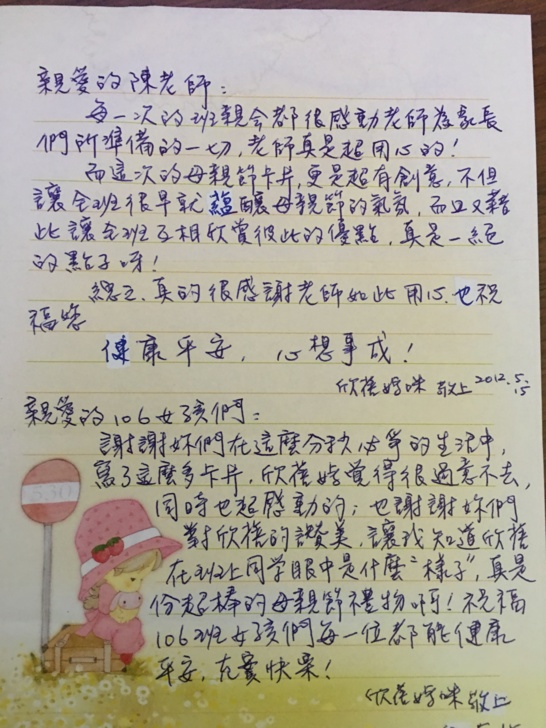 親愛的陳老師：
每一次的班親會都很感動老師為家長
們所準備的一切，老師真是超用心的！
而這次的母親節卡片，更是超有創意，不但
讓全班很早就蘊釀母親節的氣氛，而且又藉
此讓全班互相欣賞彼此的優點，真是一絕
的點子呀！
總之，真的很感謝老師如此用心，也祝
福您
健康平安，心想事成！
欣蓓媽咪 敬上 2012.5.15
親愛的106女孩們：
謝謝妳們在這麼分秒必爭的生活中，
寫了這麼多卡片，欣蓓媽覺得很過意不去，
同時也超感動的；也謝謝妳們
對欣蓓的讚美，讓我知道欣蓓
在班上同学眼中是什麼"樣子"，真是
份超棒的母親節禮物啊！祝福
106班女孩們每一位都能健康
平安，充實快樂！
欣蓓媽咪 敬上